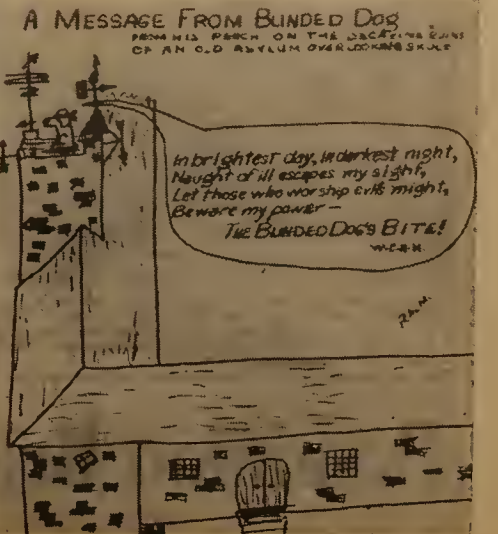 A MESSAGE FROM BLINDED DOG
FROM HIS PERCH ON THE DECAYING RUINS
OF AN OLD ASYLUM OVERLOOKING
In brightest day, in darkest night,
Naught of ill escapes my sight,
Let those who worship evils might,
Beware my power —
THE BLINDED DOG'S BITE!